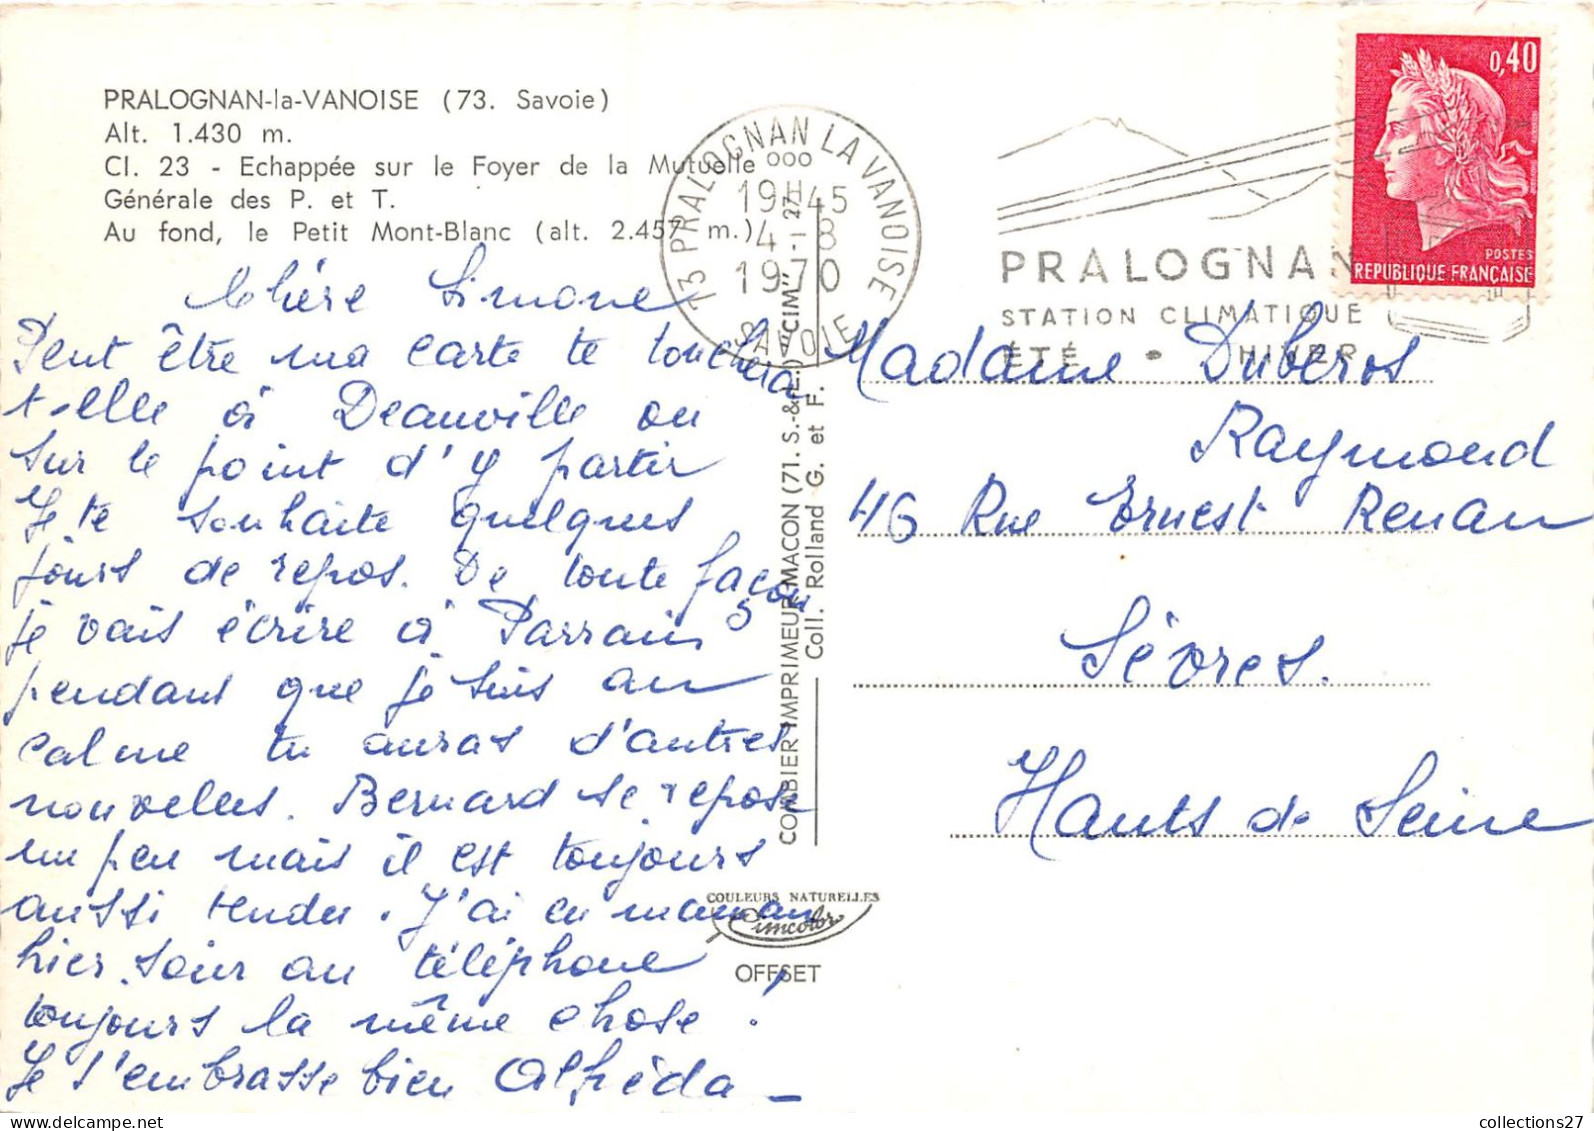 PRALOGNAN-la-VANOISE (73. Savoie)
Alt. 1.430 m.
Cl. 23 - Echappée sur le Foyer de la Mutuelle
Générale des P. et T.
Au fond, le Petit Mont-Blanc (alt. 2.457 m.)
Chère Simone
Peut être ma carte te touchera
t-elle à Deauville ou
sur le point d'y partir
Je te souhaite quelques
jours de repos. De toute façon
je vais écrire à Parrain
pendant que je suis au
calme tu auras d'autres
nouvelles. Bernard se repose
un peu mais il est toujours
aussi tendu. J'ai eu maman
hier soir au téléphone
toujours la même chose !
Je t'embrasse bien Alfréda
73 PRALOGNAN LA VANOISE
000
19H45
4-8
1970
SAVOIE
COMBIER IMPRIMEUR MACON (71. S.-&-L.) "CIM" - 1 27
Coll. Rolland G. et F.
COULEURS NATURELLES
Cimcolor
OFFSET
PRALOGNAN
STATION CLIMATIQUE
ÉTÉ • HIVER
0,40
POSTES
REPUBLIQUE FRANÇAISE
Madame Duberos
Raymond
46 Rue Ernest Renan
Sèvres.
Hauts de Seine
collections27